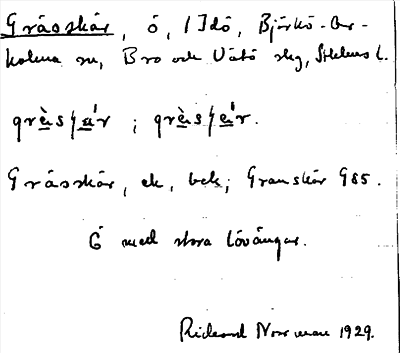 Grässkär, ö, 1 Idö, Björkö-Ar-
holma sn, Bro och Vätö skg, Sthlms l.
grè̱s/a̱'r ; grè̱s/a̱'r.
Grässkär, ek, bck; Granskär G85.
Ö med stora lövängar.
Rickard Norrman 1929.